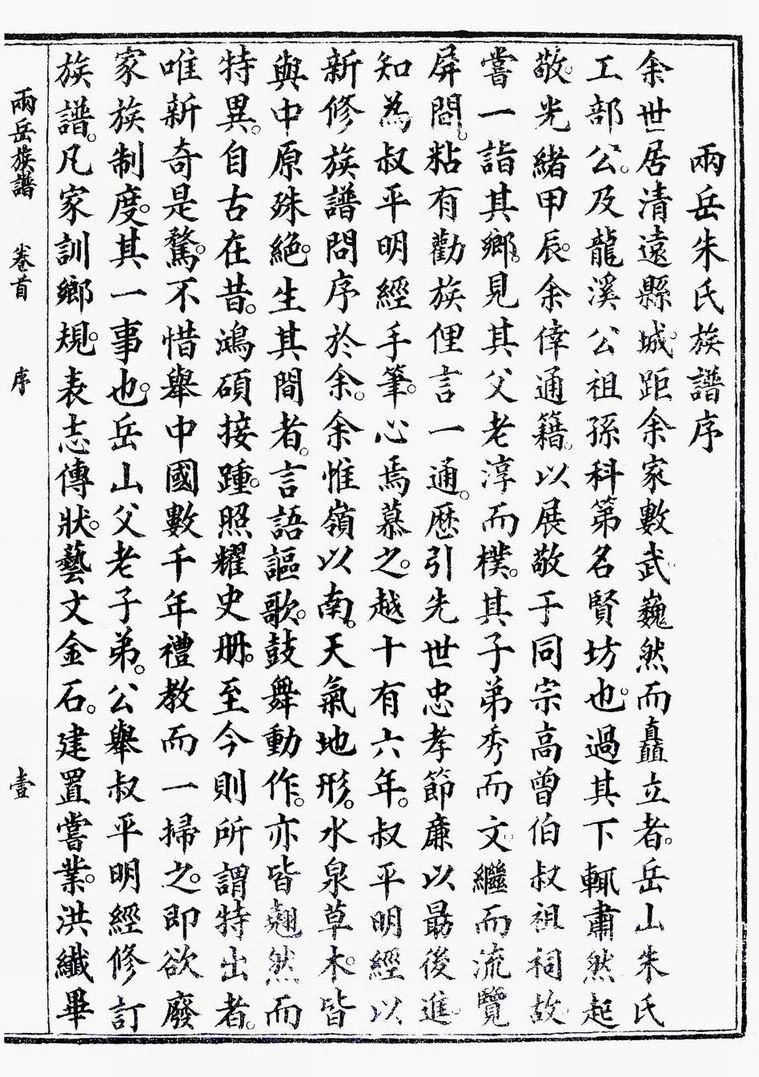 兩岳朱氏族譜序
余世居清遠縣城。距余家數武巍然而矗立者。岳山朱氏
工部公。及龍溪公祖孫科第名賢坊也。過其下輒肅然起
敬。光緒甲辰。余倖通籍。以展敬于同宗高曾伯叔祖祠。故
嘗一詣其鄉。見其父老淳而樸。其子弟秀而文。繼而流覽
屏間。粘有勸族俚言一通。歷引先世忠孝節廉以勗後進。
知為叔平明經手筆。心焉慕之。越十有六年。叔平明經以
新修族譜問序於余。余惟嶺以南。天氣地形。水泉草木。皆
與中原殊絕。生其間者。言語謳歌。鼓舞動作。亦皆翹然而
特異。自古在昔。鴻碩接踵。照耀史册。至今則所謂特出者。
唯新奇是騖。不惜舉中國數千年禮教而一掃之。即欲廢
家族制度。其一事也。岳山父老子弟。公舉叔平明經修訂
族譜。凡家訓鄉規。表志傳狀。藝文金石。建置嘗業。洪纖畢
兩岳族譜 卷首 序 壹